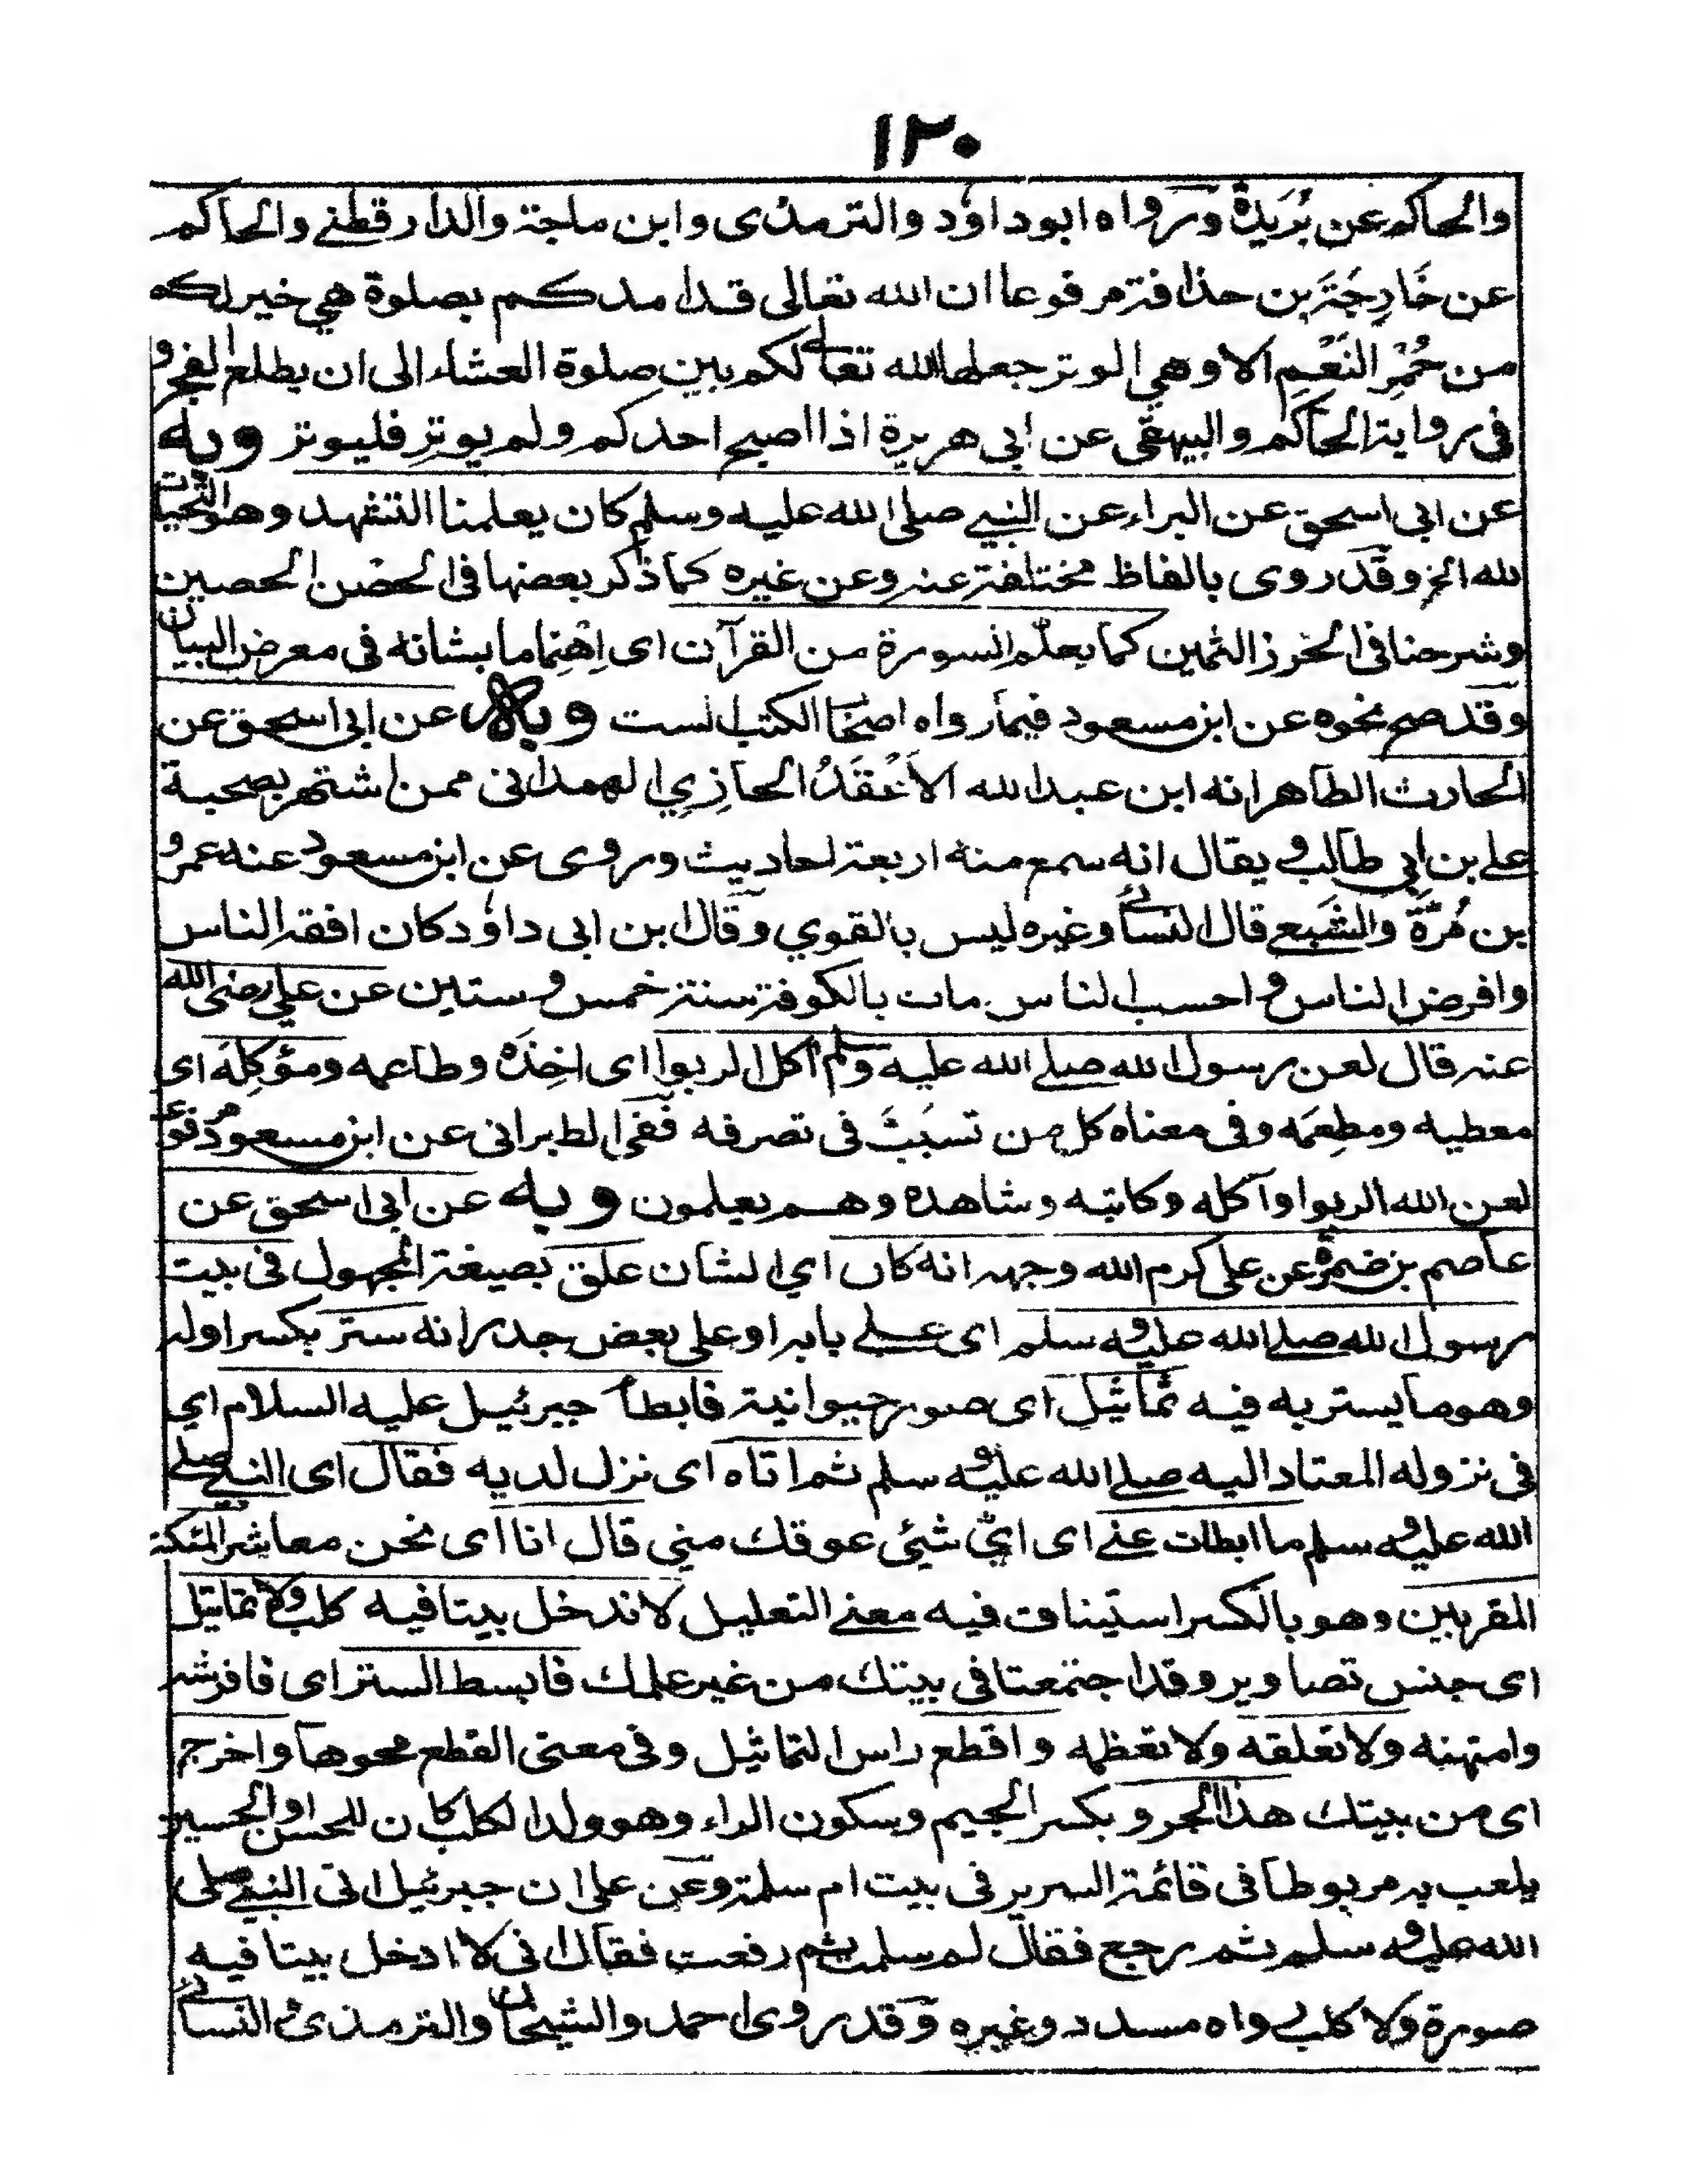 ١٢٠
والحاكم عن بُرَيدة ورواه ابو داود والترمذى وابن ماجة والدارقطنے والحاكم
عن خَارِجَة بن حذافة مرفوعا ان الله تعالى قد امدكم بصلوة هي خير لكم
من حُمْرِ النَعَمِ الا وهي الوتر جعلها الله تعالے لكم بين صلوة العشاء الى ان يطلع الفجر و
فى رواية الحاكم والبيهقى عن ابى هريرة اذا اصبح احدكم ولم يوتِر فليوتر وبه
عن ابى اسحق عن البراء عن النبے صلى الله عليه وسلم كان يعلمنا التشهد وهو التحيات
لله الخ وقد روى بالفاظ مختلفة عنه وعن غيره كما ذكر بعضها فى الحصن الحصين
وشرحنا فى الحرز الثمين كما يعلّم السورة من القرآن اى اِهْتِماما بشانه فى معرض البيان
وقد صح نحوه عن ابن مسعود فيما رواه اصحاب الكتب الست وبه عن ابى اسحق عن
الحارث الظاهر انه ابن عبد الله الاعقد الحازِي الهمدانى ممن اشتهر بصحبة
علے بن ابي طالب و يقال انه سمع منه اربعة احاديث وروى عن ابن مسعود عنه عمرو
بن مُرَّة والشَّعبے قال النسائے وغيره ليس بالقوي وقال ابن ابى داؤد كان افقه الناس
وافرض الناس واحسب الناس مات بالكوفة سنة خمس وستين عن علي رضى الله
عنه قال لعن رسول الله صلے الله عليه وسلم آكل الربوا اى اخِذَه وطاعمه ومؤكِلَه اى
معطيه ومطعِمَه وفى معناه كل من تسبّب فى تصرفه ففى الطبرانى عن ابن مسعود مرفوعا
لعن الله الربوا وآكله وكاتبه وشاهده وهم يعلمون وبه عن ابى اسحق عن
عاصم بن ضمرة عن على كرم الله وجهه انه كان اي الشان علق بصيغة المجهول فى بيت
رسول الله صلے الله عليه وسلم اى علے بابه او على بعض جدرانه ستر بكسر اوله
وهو ما يستر به فيه تماثيل اى صور حيوانية فابطأ جبرئيل عليه السلام اي
فى نزوله المعتاد اليه صلے الله عليه وسلم ثم اتاه اى نزل لديه فقال اى النبے صلے
الله عليه وسلم ما ابطات عنے اى ايّ شيئ عوقك مني قال انا اى نحن معاشر الملئكة
المقربين وهو بالكسر استيناف فيه معنے التعليل لا ندخل بيتا فيه كلب ولا تماثيل
اى جنس تصاوير وقد اجتمعتا فى بيتك من غير علمك فابسط الستر اى فافرشه
وامتهنه ولا تعلقه ولا تعظمه واقطع راس التماثيل وفى معنى القطع محوها واخرج
اى من بيتك هذا الجرو بكسر الجيم وسكون الراء وهو ولد الكلب كان للحسن او الحسين
يلعب به مربوطا فى قائمة السرير فى بيت ام سلمة وعن على ان جبرئيل اتى النبے صلى
الله عليه وسلم ثم رجع فقال لم سلمت ثم رفعت فقال انى لا ادخل بيتا فيه
صورة ولا كلب رواه مسدد وغيره وقد روى احمد والشيخان والترمذى والنسائے